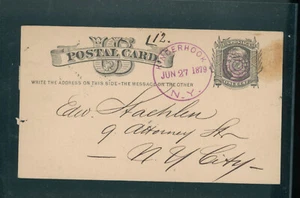 112.
US
POSTAL CARD
WRITE THE ADDRESS ON THIS SIDE - THE MESSAGE ON THE OTHER
JUN 27 1879
N.Y.
Edw. Stachlen
9 Attorney St
N. Y. City